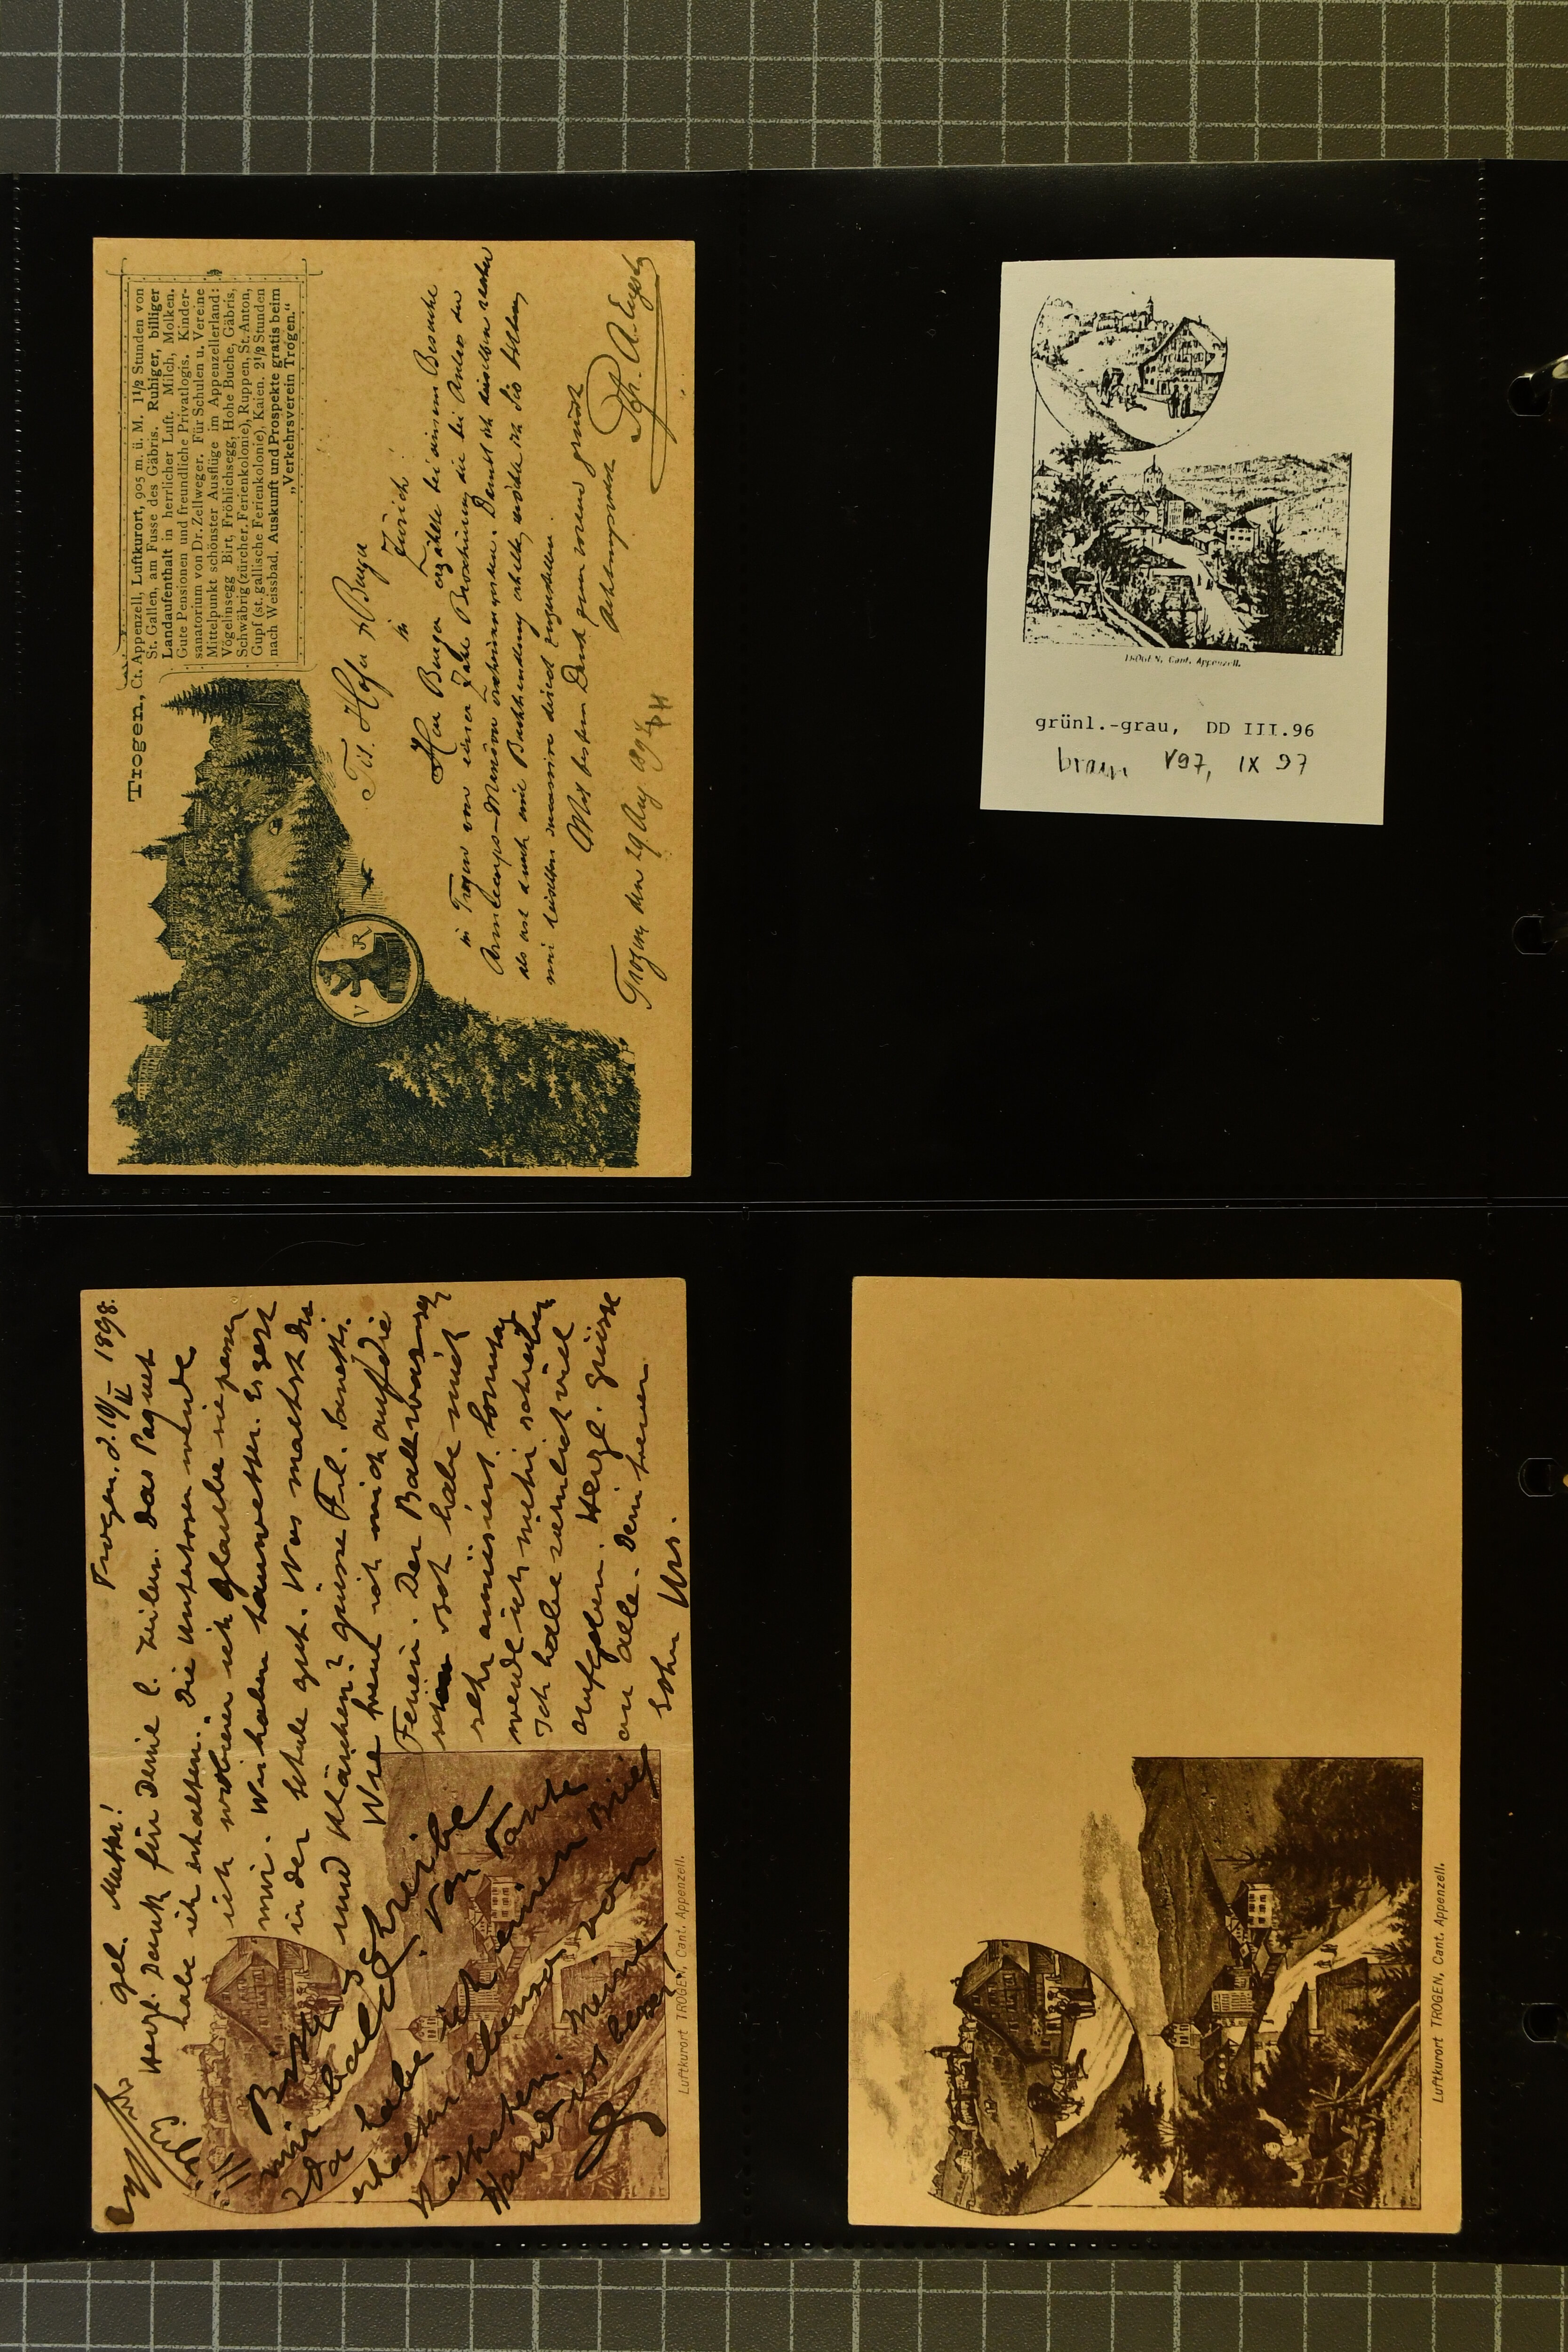 Trogen, Ct. Appenzell, Luftkurort, 905 m. ü. M. 1 1/2 Stunden von
St. Gallen, am Fusse des Gäbris. Ruhiger, billiger
Landaufenthalt in herrlicher Luft. Milch, Molken.
Gute Pensionen und freundliche Privatlogis. Kinder-
sanatorium von Dr. Zellweger. Für Schulen u. Vereine
Mittelpunkt schönster Ausflüge im Appenzellerland:
Vögelinsegg Birt, Fröhlichsegg, Hohe Buche, Gäbris,
Schwäbrig (zürcher. Ferienkolonie), Ruppen, St. Anton,
Gupf (st. gallische Ferienkolonie), Kaien. 2 1/2 Stunden
nach Weissbad. Auskunft und Prospekte gratis beim
„Verkehrsverein Trogen."
V R
Tit. Hofer & Burger
in Zürich.
Herr Burger erzählte bei seinem Besuche
in Trogen von einer Zahl Broschüren, die bei Anlass der
als auch durch eine Buchhandlung erhalte, möchte ich Sie bitten,
mir dieselben direct zuzustellen.
Mit bestem Dank zum voraus grüsst
Trogen den 29. Aug
TROGEN, Cant. Appenzell.
grünl.-grau, DD III.96
braun V97, IX 97
Trogen. d. 10/II 1898.
gel. Mutter!
Herzl. Dank für Deine l. Zeilen. Das Paquet
habe ich erhalten. Die Unterhosen werde
ich probieren ich glaube sie passen
mir. Wir haben Thauwetter. Es geht
in der Schule gut. Was macht Die
und Klärchen? grüsse Frl.
Wie freue ich mich auf die
Ferien. Der Ball war
schön ich habe mich
sehr amüsiert. Sonntag
werde ich nicht schreiben
Ich habe ziemlich viel
aufgaben. Herzl. grüsse
an alle. Dein treuer
Sohn Urs.
Bitte
mir bald schreibe
da habe ich von Tante
erhalten ebenso einen Brief
Luftkurort TROGEN, Cant. Appenzell.
Luftkurort TROGEN, Cant. Appenzell.